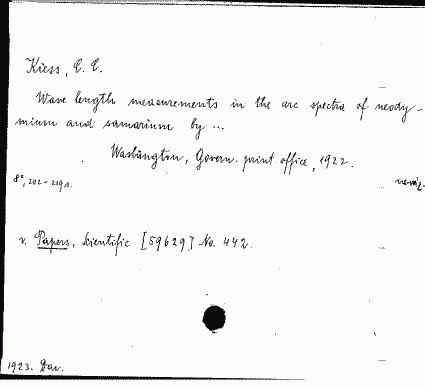 Kiess, C. C.
Wave length measurements in the arc spectra of neody-
mium and samarium by ...
Washington, Govern. print. office, 1922.
8°, 202-219 s.
v. Papers, Scientific [59629] No. 442.
1923. Dar.